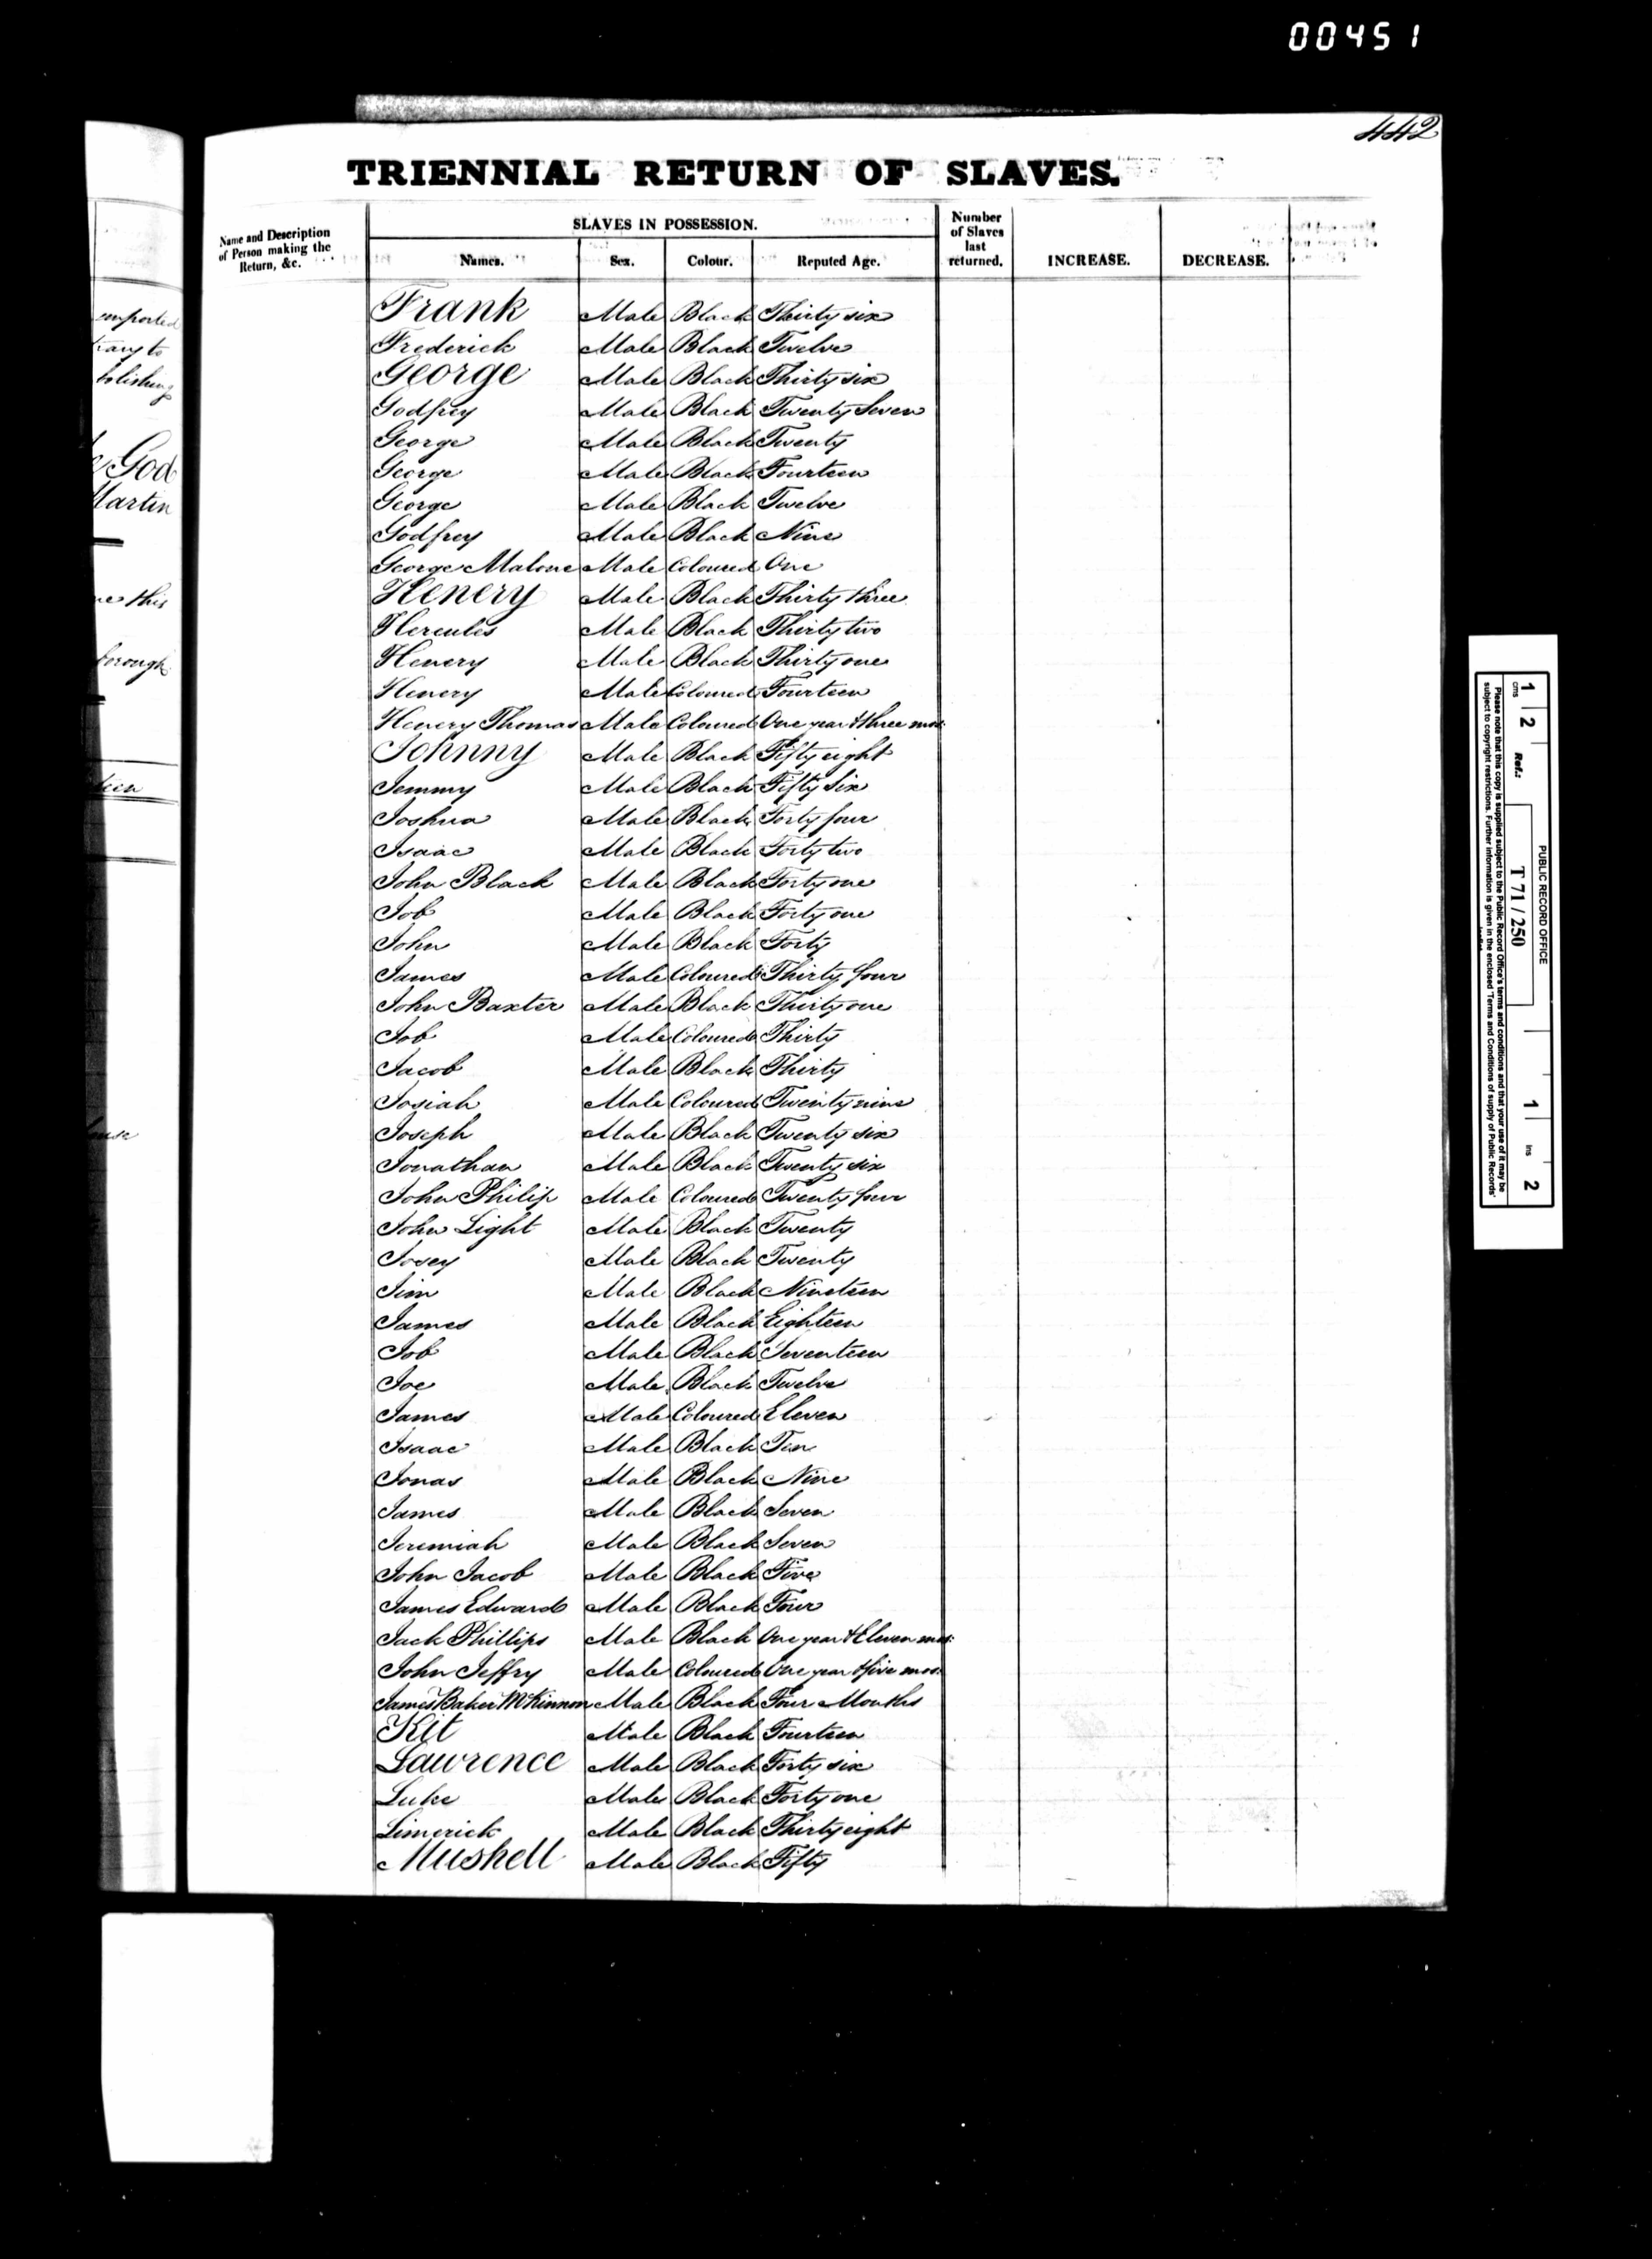 00451
442
TRIENNIAL RETURN OF SLAVES.
Name and Description
of Person making the
Return, &c.
SLAVES IN POSSESSION.
Names. Sex. Colour. Reputed Age.
Number
of Slaves
last
returned.
INCREASE. DECREASE.
Frank Male Black Thirty six
Frederick Male Black Twelve
George Male Black Thirty six
Godfrey Male Black Twenty Seven
George Male Black Twenty
George Male Black Fourteen
George Male Black Twelve
Godfrey Male Black Nine
George Malone Male Coloured One
Henery Male Black Thirty three
Hercules Male Black Thirty two
Henery Male Black Thirty one
Henery Male Coloured Fourteen
Henery Thomas Male Coloured One year & three mos.
Johnny Male Black Fifty eight
Jemmy Male Black Fifty Six
Joshua Male Black Forty four
Isaac Male Black Forty two
John Black Male Black Forty one
Job Male Black Forty one
John Male Black Forty
James Male Coloured Thirty four
John Baxter Male Black Thirty one
Job Male Coloured Thirty
Jacob Male Black Thirty
Josiah Male Coloured Twenty nine
Joseph Male Black Twenty six
Jonathan Male Black Twenty six
John Philip Male Coloured Twenty four
John Light Male Black Twenty
Josey Male Black Twenty
Jim Male Black Nineteen
James Male Black Eighteen
Job Male Black Seventeen
Joe Male Black Twelve
James Male Coloured Eleven
Isaac Male Black Ten
Jonas Male Black Nine
James Male Black Seven
Jeremiah Male Black Seven
John Jacob Male Black Five
James Edward Male Black Four
Jack Phillips Male Black One year & Eleven mos.
John Jeffry Male Coloured One year & five mos.
James Baker McKinnon Male Black Four Months
Kit Male Black Fourteen
Lawrence Male Black Forty six
Luke Male Black Forty one
Limerick Male Black Thirty eight
Mushell Male Black Fifty
imported
to
God
Martin
this
borough
PUBLIC RECORD OFFICE
1 2 1 2
cms Ref.: T 71 / 250 ins
Please note that this copy is supplied subject to the Public Record Office's terms and conditions and that your use of it may be
subject to copyright restrictions. Further information is given in the enclosed 'Terms and Conditions of supply of Public Records'